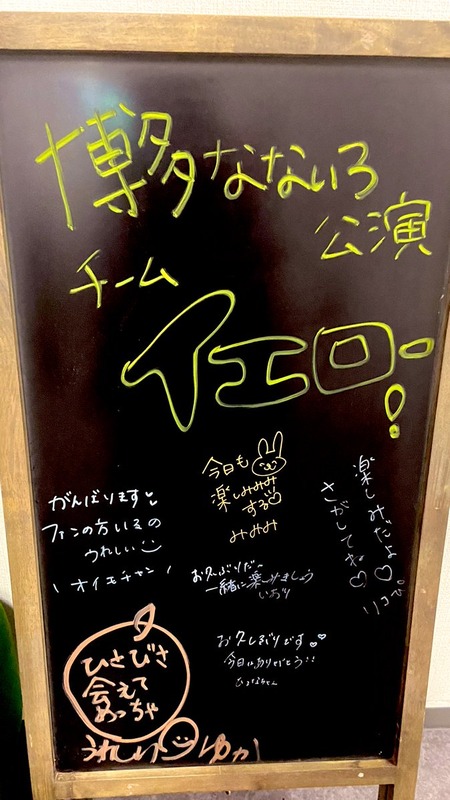 博多なないろ
公演
チーム
イエロー!
今日も
楽しみみみ
する♡
みみみ
がんばります♡
ファンの方いるの
うれしい
\ オイモチャン /
楽しみだよ♡
さがしてね♡
りこぴ
お久ぶりだ〜
一緒に楽〜みましょう
いおり
お久しぶりです♡
今日はありがとう!!
ひとびさ
会えて
めっちゃ
うれしい
ゆか